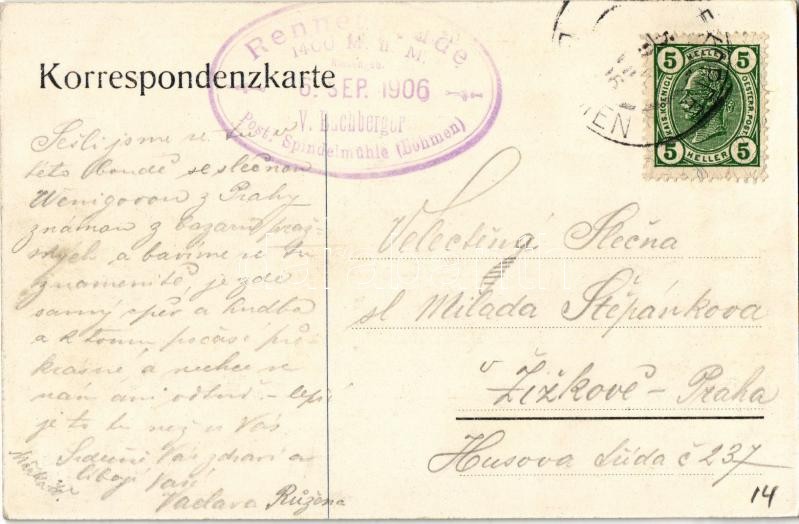 Rennerbaude
1400 M. ü. M.
6. SEP. 1906
V. Buchberger
Post. Spindelmühle (Böhmen)
Korrespondenzkarte
5 HELLER 5
KAIS. KOENIGL. OESTERR. POST
5 HELLER 5
Sešli jsme se tu v
této boudě se slečnou
Wenigovou z Prahy
známou z bazarů praž-
ských a bavíme se tu
znamenitě, je zde
samý zpěv a hudba
a k tomu počasí pře-
krásné, a nechce se
nám ani odtud - lepší
je to tu než u Vás
Srdečně Vás zdraví a
líbají Vaší
Vaclava Růžena
Velectěná Slečna
sl Milada Štěpánkova
v
Žižkově - Praha
Husova třída č 237
14